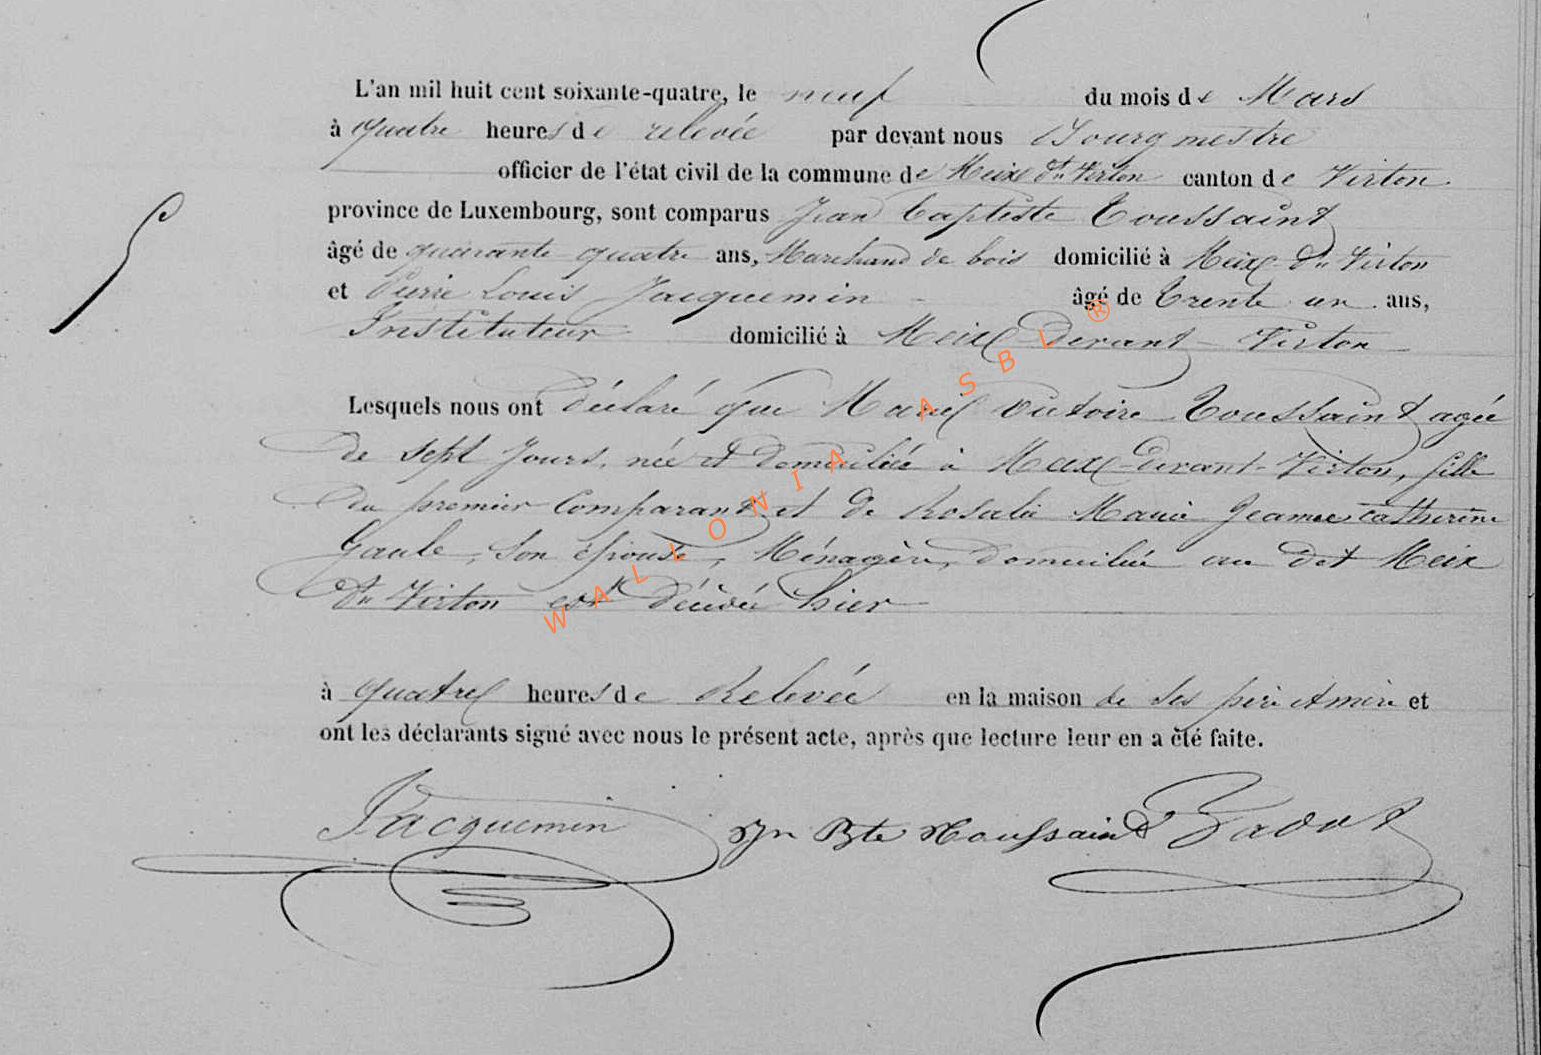 L'an mil huit cent soixante-quatre, le neuf du mois de Mars
à quatre heures de relevée par devant nous Bourgmestre
officier de l'état civil de la commune de Meix dt Virton canton de Virton
province de Luxembourg, sont comparus Jean Baptiste Toussaint
âgé de quarante quatre ans, Marchand de bois domicilié à Meix dt Virton
et Pierre Louis Jacquemin âgé de trente un ans,
Instituteur domicilié à Meix devant Virton
Lesquels nous ont déclaré que Marie Victoire Toussaint agée
de sept jours, née et domiciliée à Meix-devant-Virton, fille
du premier Comparant et de Rosalie Marie Jeanne Catherine
Gaule, son épouse, Ménagère, domiciliée au dit Meix
dt Virton est décédée hier
à quatre heures de Relevée en la maison de ses père et mère et
ont les déclarants signé avec nous le présent acte, après que lecture leur en a été faite.
Jacquemin Jn Bte Toussaint
WALLONIA ASBL ®